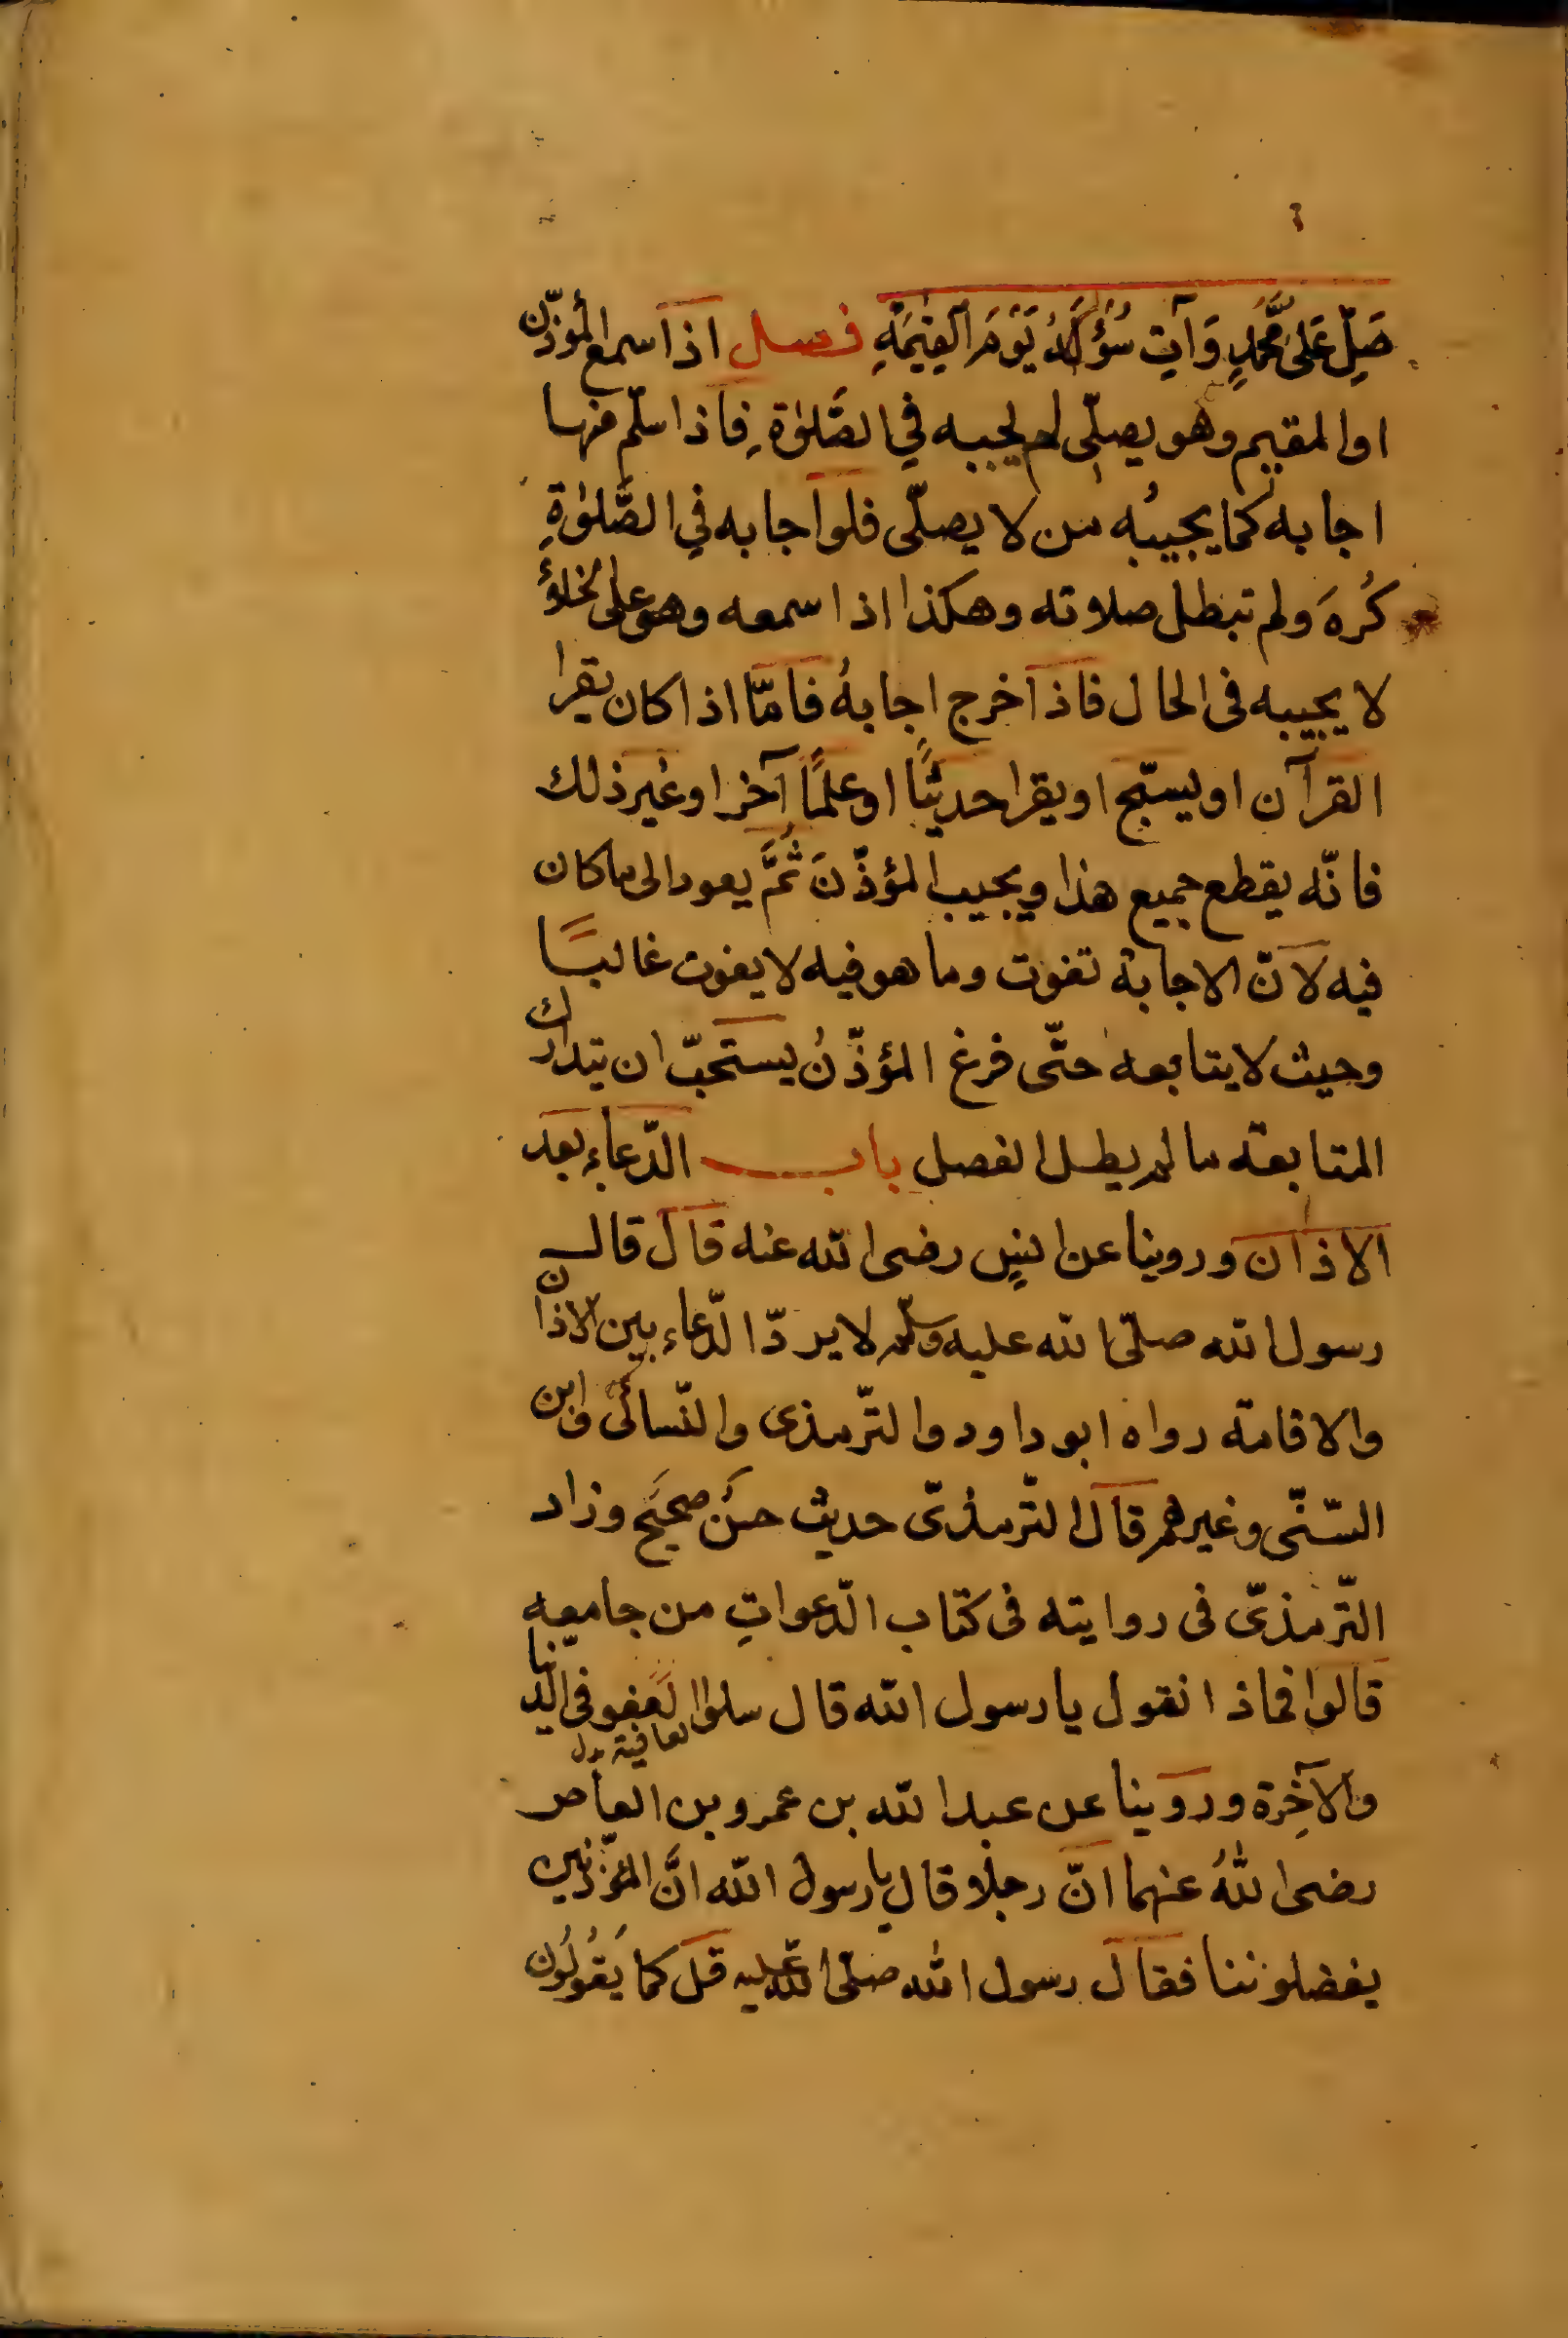 صَلِّ عَلى مُحَمَّدٍ وَآتِ سُؤْلَهُ يَوْمَ الْقِيٰمَةِ فصل اذا سمع المؤذّن
او المقيم وهو يصلّى لم يجبه في الصَّلوٰة فاذا سلّم منها
اجابه كما يجيبُه من لا يصلّى فلو اجابه في الصَّلوٰةِ
كُرهَ ولم تبطل صلاته وهكذا اذا سمعه وهو على الخلاءُ
لا يجيبه فى الحال فاذا خرج اجابهُ فامّا اذا كان يقرا
القرآن او يسبّح او يقرا حديثًا او علمًا آخر او غير ذلك
فانّه يقطع جميع هذا ويجيب المؤذّنَ ثُمَّ يعود الى ما كان
فيه لانّ الاجابة تفوت وما هو فيه لا يفوت غالبًا
وحيث لا يتابعه حتّى فرغ المؤذّنُ يستحَبّ ان يتدارك
المتابعة ما لم يطل الفصل باب الدّعاءِ بعد
الاذان وروينا عن انسٍ رضى الله عنه قال قال
رسول الله صلّى الله عليه وسلّم لا يردّ الدّعاء بين الاذان
والاقامة رواه ابو داود والترّمذى والنّسائى وابن
السّنّى وغيرهم قال الترّمذىّ حديث حسنٌ صحيحٌ وزاد
الترّمذىّ فى روايته فى كتاب الدّعواتِ من جامعه
قالوا فماذا نقول يا رسول الله قال سلوا العفو فى الدّنيا
العافية بدل
والآخِرة وروينا عن عبد الله بن عمرو بن العاص
رضى اللهُ عنهما انّ رجلًا قال يا رسول الله انَّ المؤذّنين
يفضلوننا فقال رسول الله صلّى الله عليه قل كما يَقُولُون